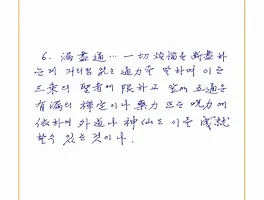 6. 漏盡通 … 一切 煩惱을 斷盡하
는데 거리낌 없는 通力을 말하며 이는
三乘의 聖者에 限하고 앞에 五通은
有漏의 禪定이나 藥力 또는 呪力에
依하여 外道나 神仙도 이를 成就
할수 있는 것이다.